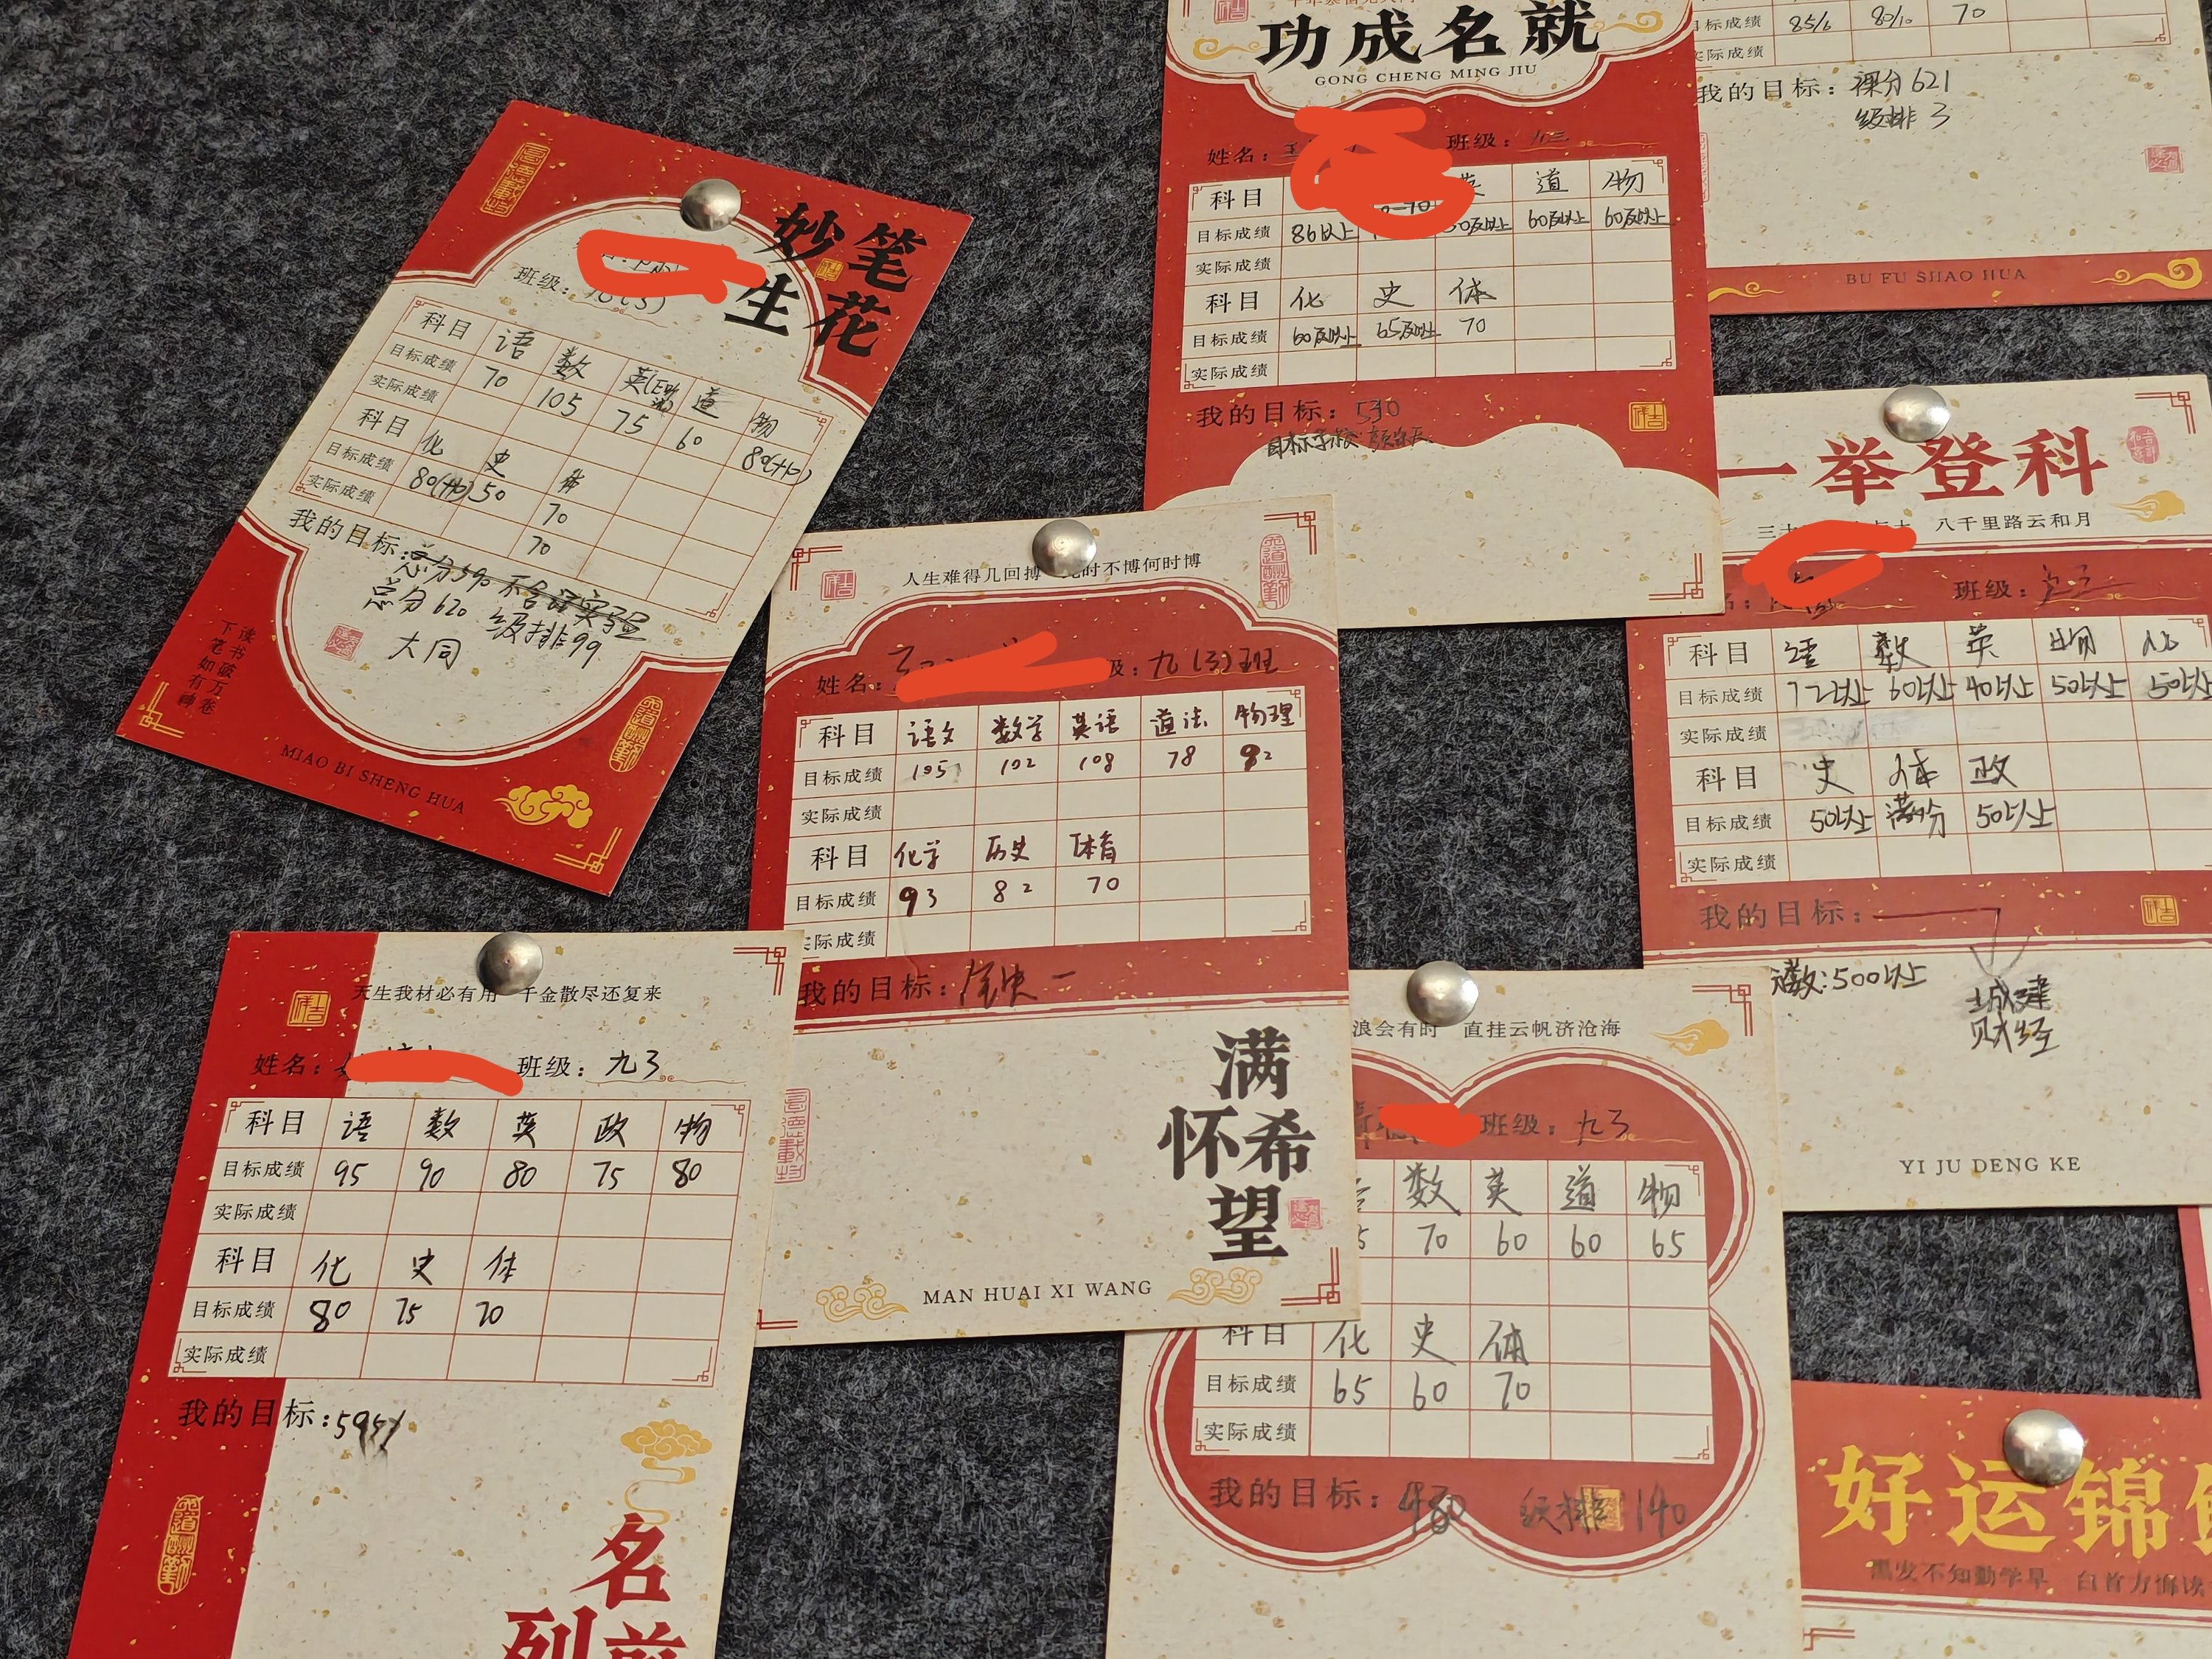 妙笔
生花
班级：
科目 语 数 英 道 物
目标成绩 70 105 75 60 80(+10)
实际成绩
科目 化 史 体
目标成绩 80(+10) 50 70
实际成绩 70
我的目标：总分590 不含语实验
总分620 级排99
大同
读书破万卷
下笔如有神
MIAO BI SHENG HUA
功成名就
GONG CHENG MING JIU
姓名：王 班级：九三
科目 英 道 物
目标成绩 86以上 0-70 50及以上 60及以上 60及以上
实际成绩
科目 化 史 体
目标成绩 60及以上 65及以上 70
实际成绩
我的目标：530
目标学校：
目标成绩 85/6 80/10 70
实际成绩
我的目标：裸分621
级排3
BU FU SHAO HUA
一举登科
三十 八千里路云和月
名： 班级：九三
科目 语 数 英 物 化
目标成绩 72以上 60以上 40以上 50以上 50以上
实际成绩
科目 史 体 政
目标成绩 50以上 满分 50以上
实际成绩
我的目标：
数：500以上
城建
财经
YI JU DENG KE
人生难得几回搏 此时不博何时博
姓名： 级：九（3）班
科目 语文 数学 英语 道法 物理
目标成绩 105 102 108 78 92
实际成绩
科目 化学 历史 体育
目标成绩 93 82 70
实际成绩
我的目标：
满
怀希
望
MAN HUAI XI WANG
天生我材必有用 千金散尽还复来
姓名： 班级：九3
科目 语 数 英 政 物
目标成绩 95 90 80 75 80
实际成绩
科目 化 史 体
目标成绩 80 75 70
实际成绩
我的目标：595分
名
列前
浪会有时 直挂云帆济沧海
班级：九3
数 英 道 物
5 70 60 60 65
科目 化 史 体
目标成绩 65 60 70
实际成绩
我的目标：480 级排140
好运锦
黑发不知勤学早 白首方悔读